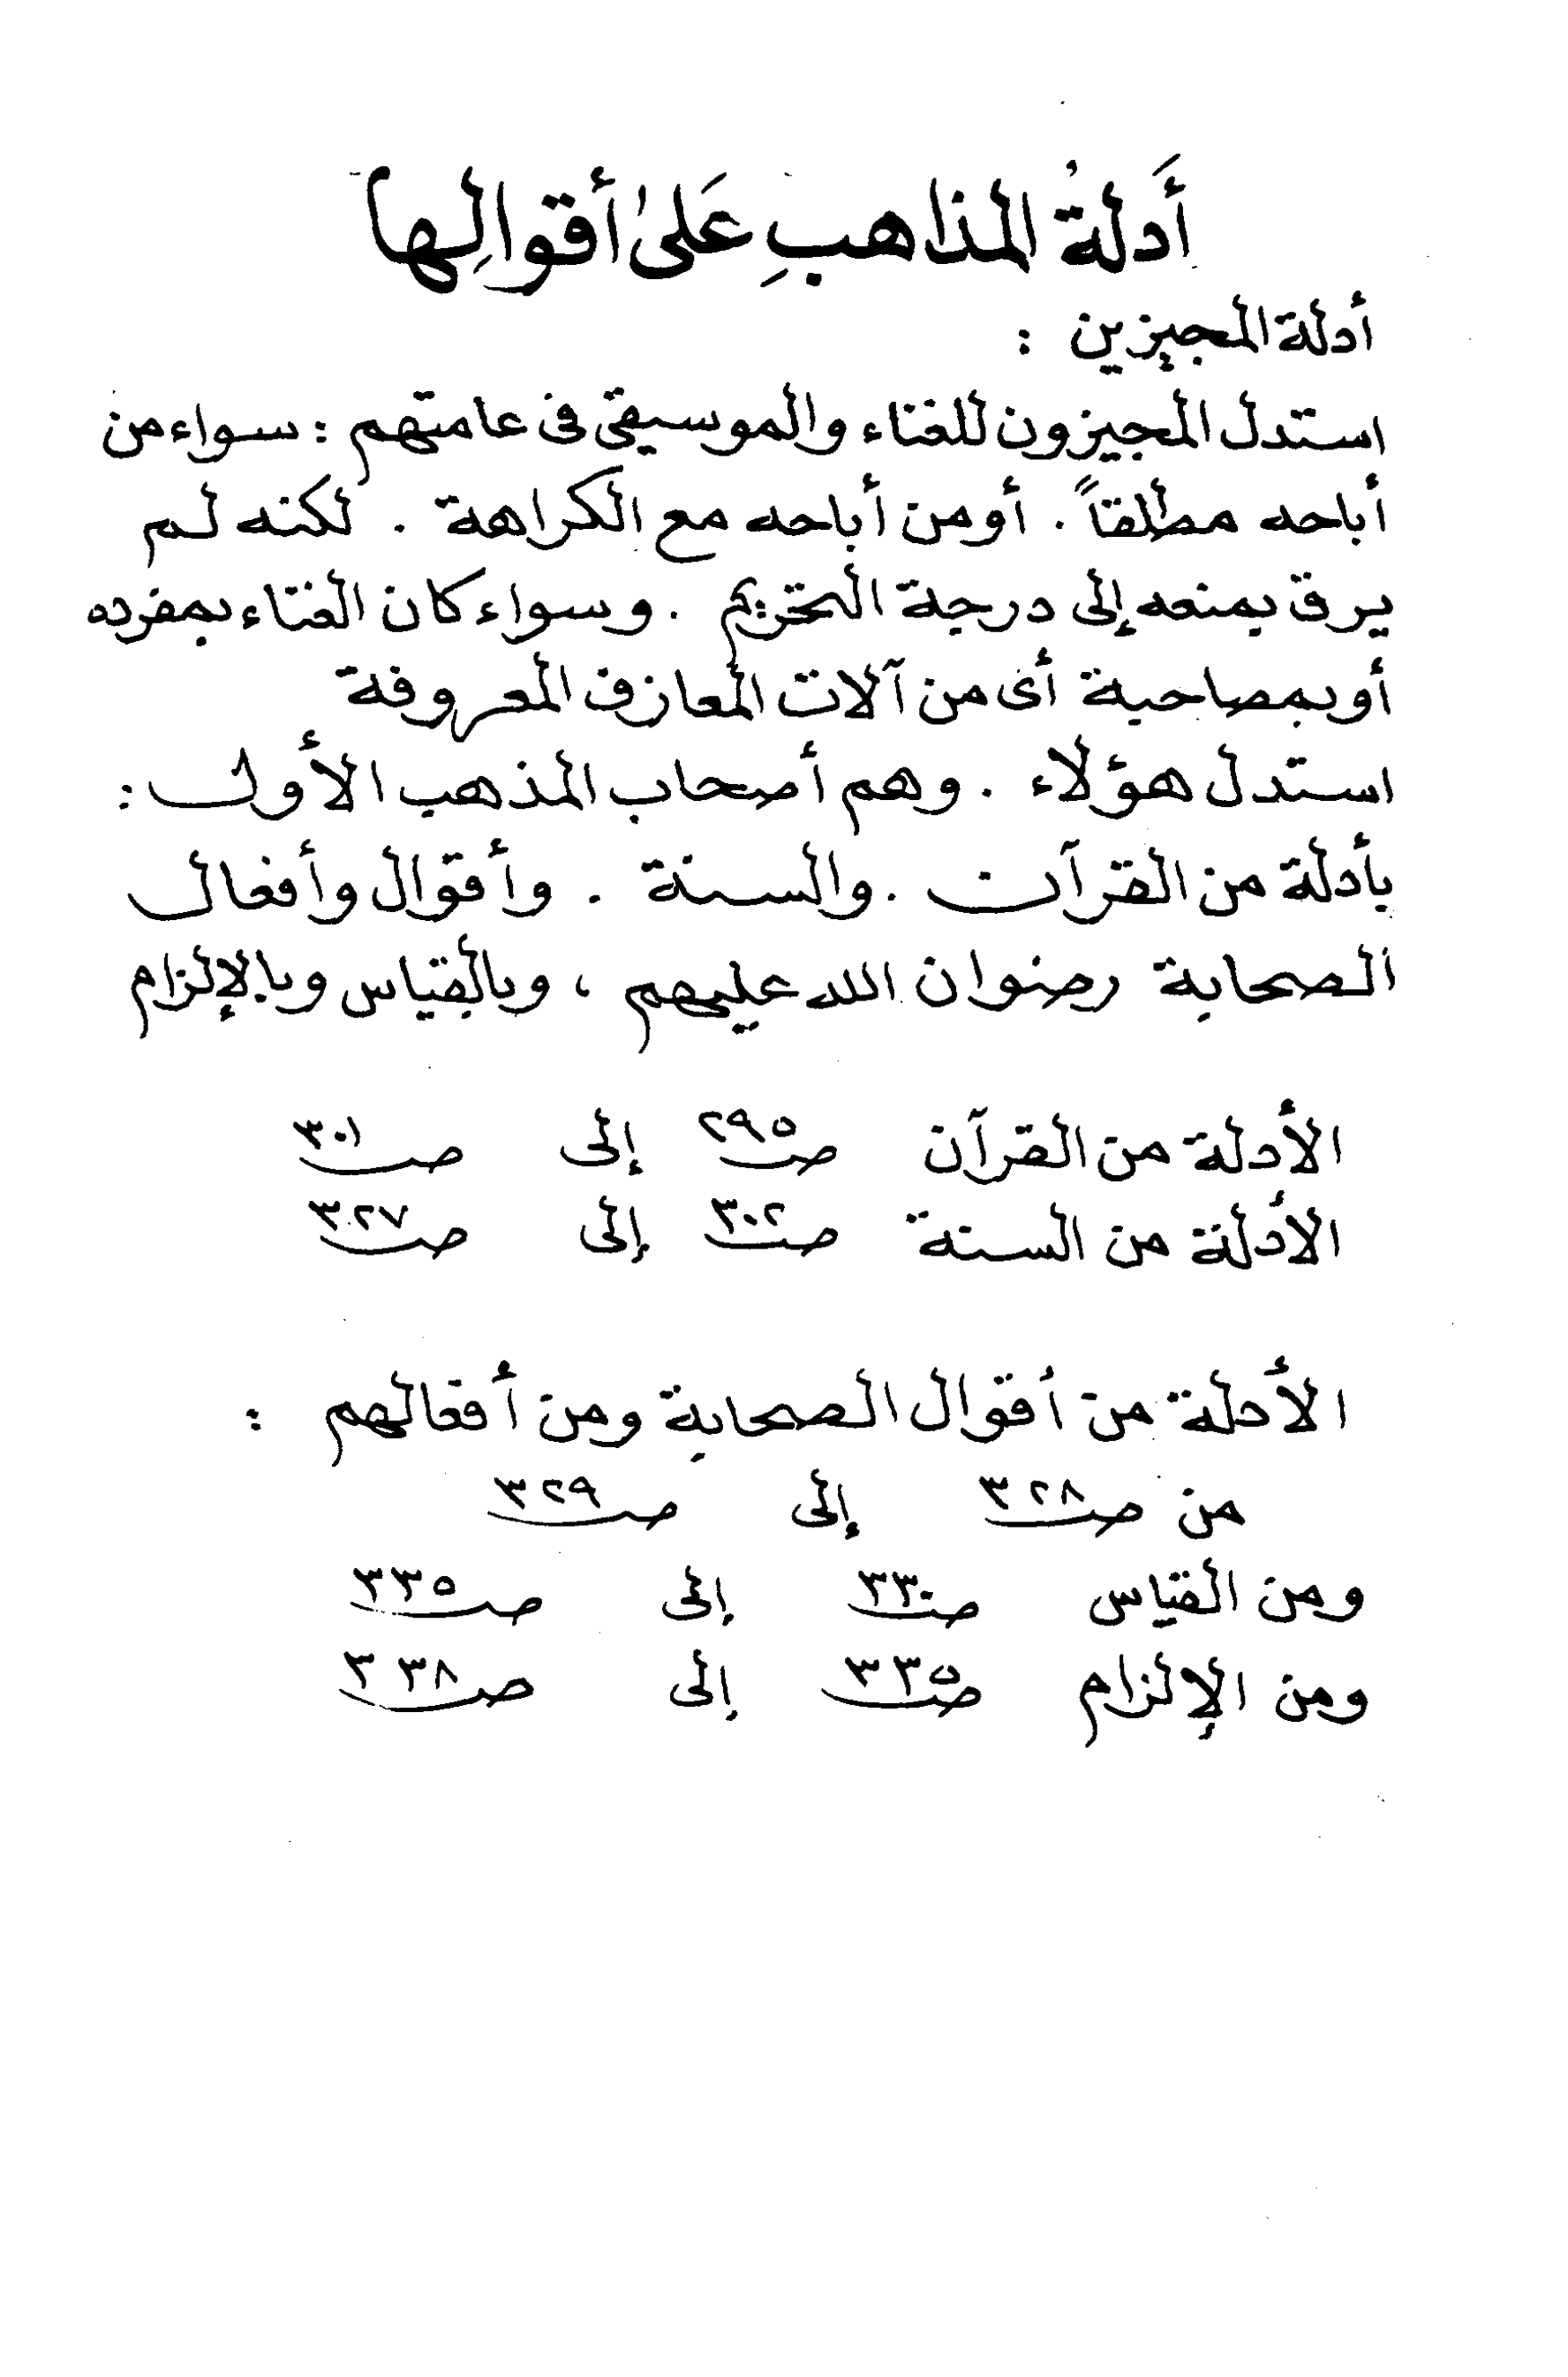 أَدلةُ المذاهبِ عَلىٰ أقوالِها
أدلة المجيزين :
استدل المجيزون للغناء والموسيقى فى عامتهم : سواء من
أباحه مطلقاً . أو من أباحه مع الكراهة . لكنه لم
يرق بمنعه إلى درجة التحريم . وسواء كان الغناء بمفرده
أو بمصاحبة أى من آلات المعازف المعروفة
استدل هؤلاء . وهم أصحاب المذهب الأول :
بأدلة من القرآن . والسنة . وأقوال وأفعال
الصحابة رضوان الله عليهم ، وبالقياس وبالإلزام
الأدلة من القرآن ص ٢٩٥ إلى ص ٣٠١
الأدلة من السنة ص ٣٠٢ إلى ص ٣٢٧
الأدلة من أقوال الصحابة ومن أفعالهم :
من ص ٣٢٨ إلى ص ٣٢٩
ومن القياس ص ٣٣٠ إلى ص ٣٣٥
ومن الإلزام ص ٣٣٥ إلى ص ٣٣٨